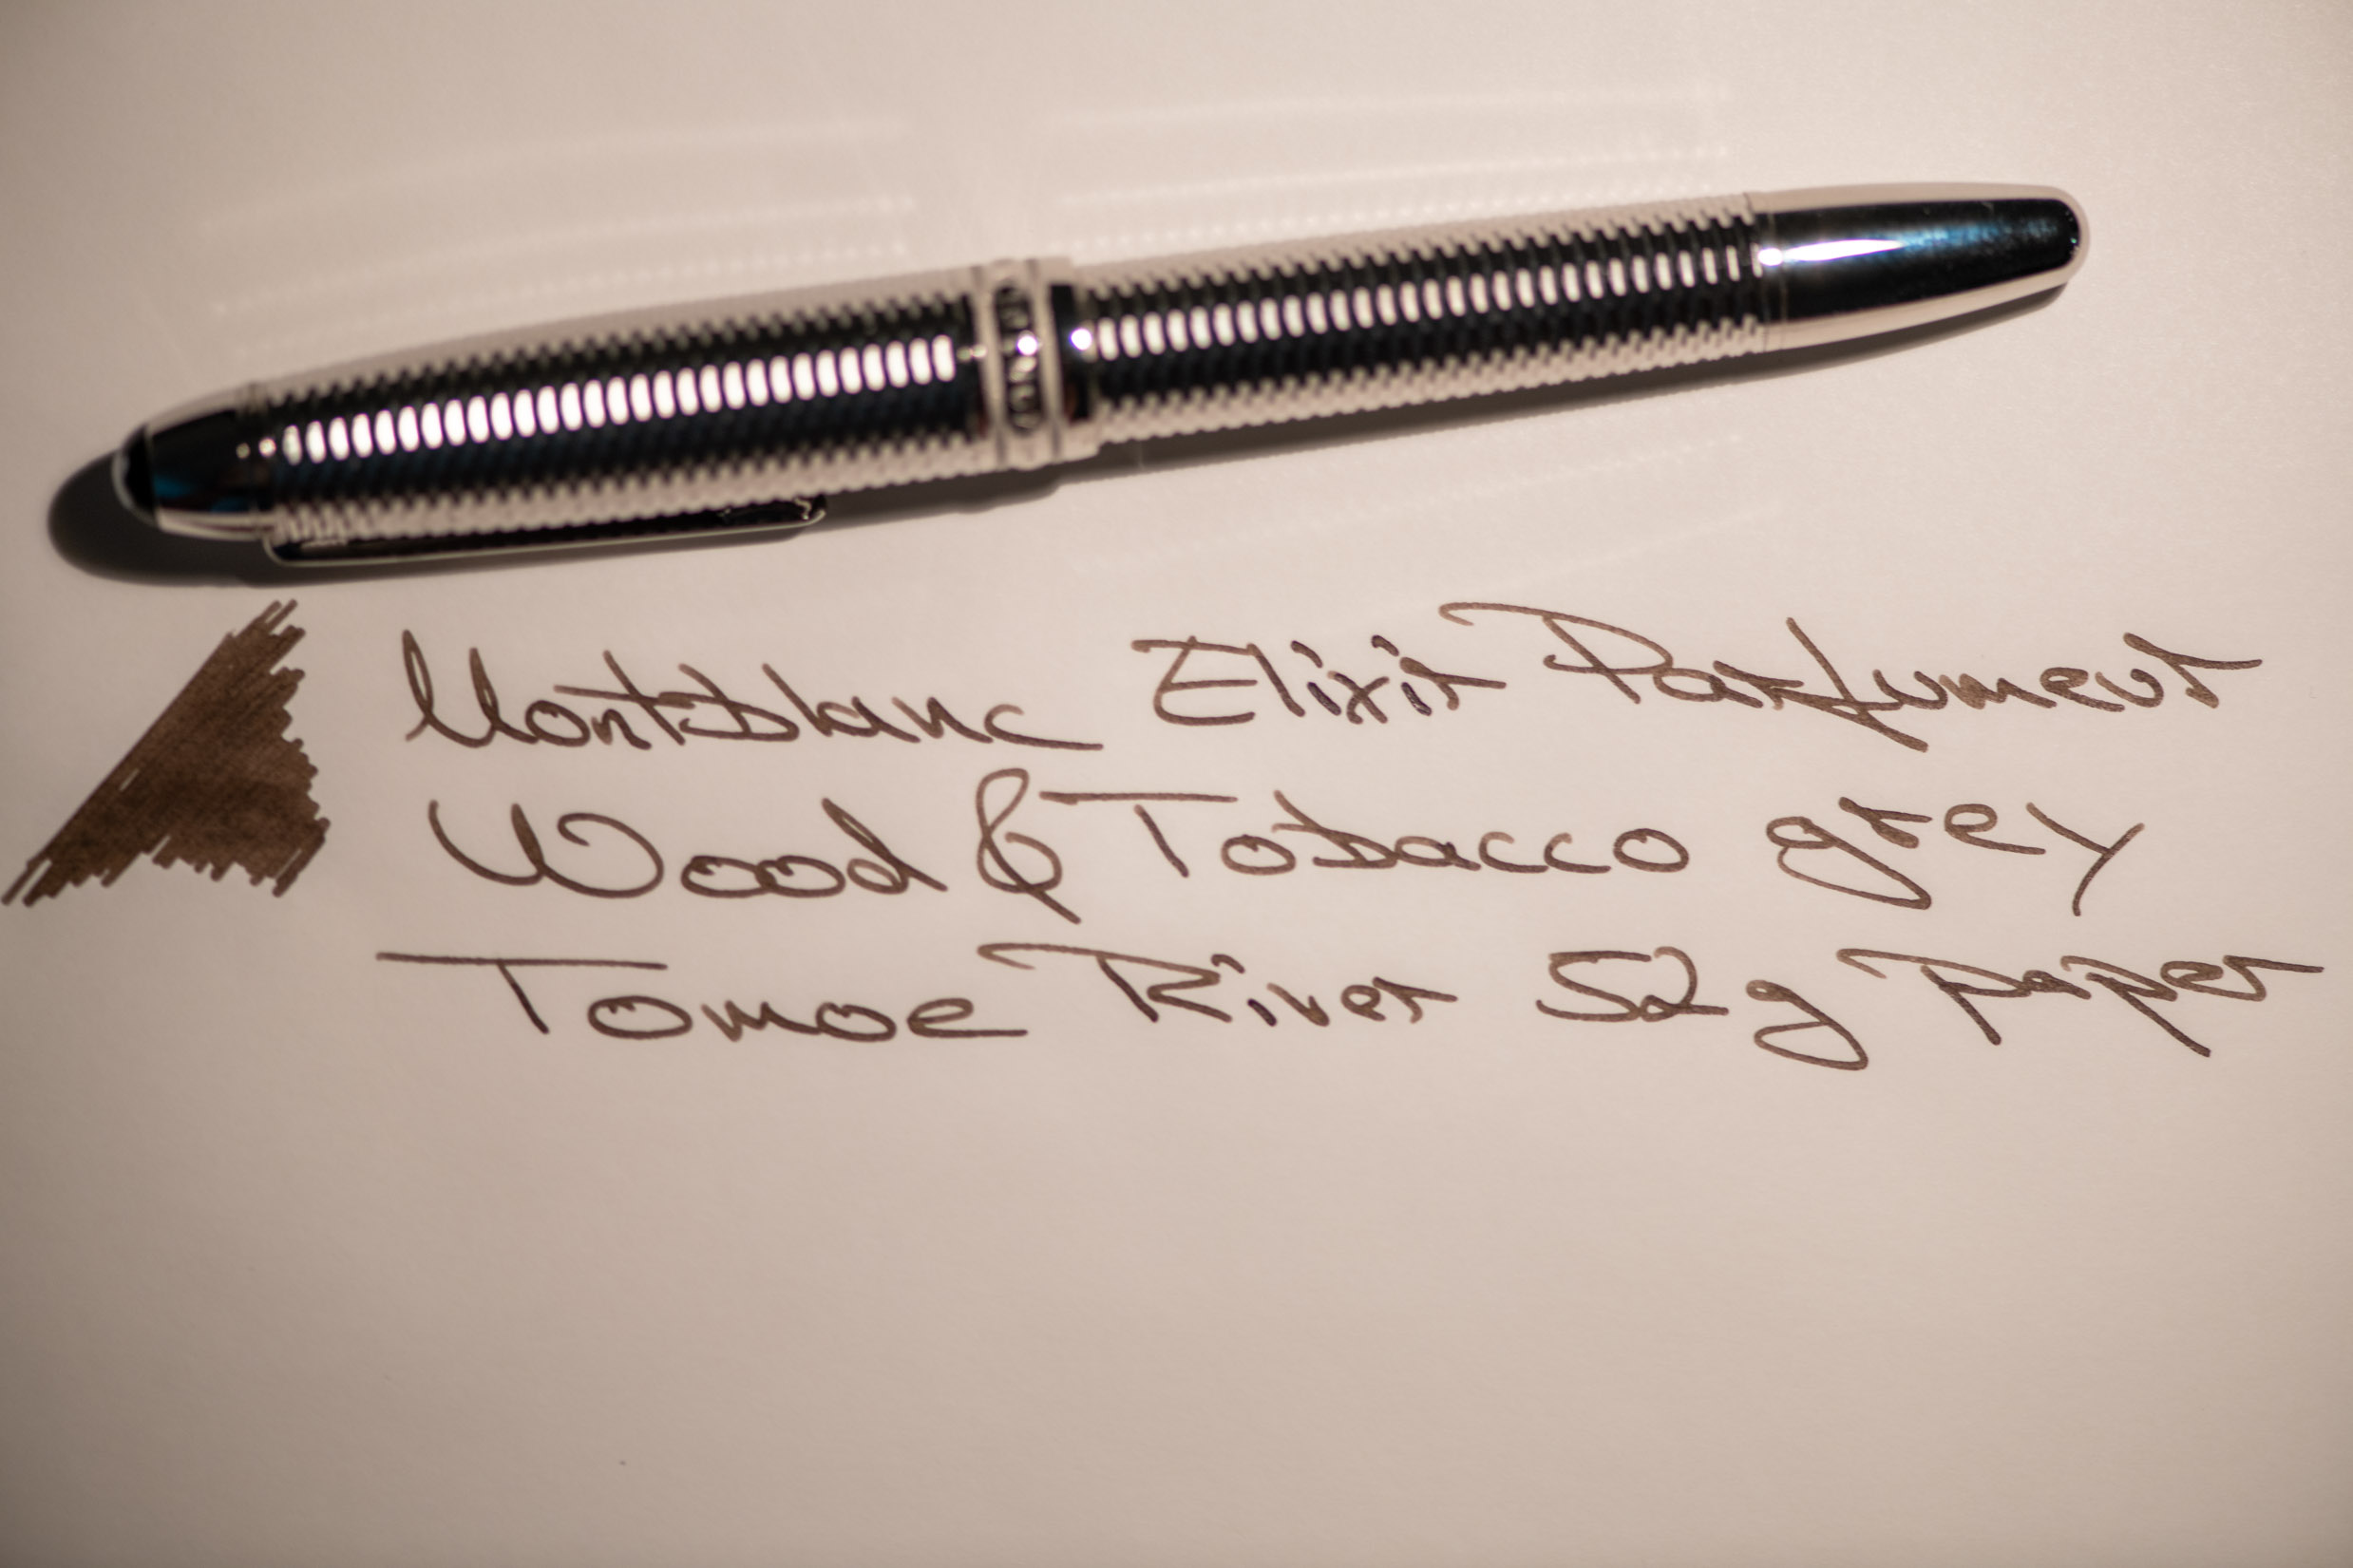 Montblanc Elixir Parfumeur
Wood & Tobacco grey
Tomoe River 52g paper